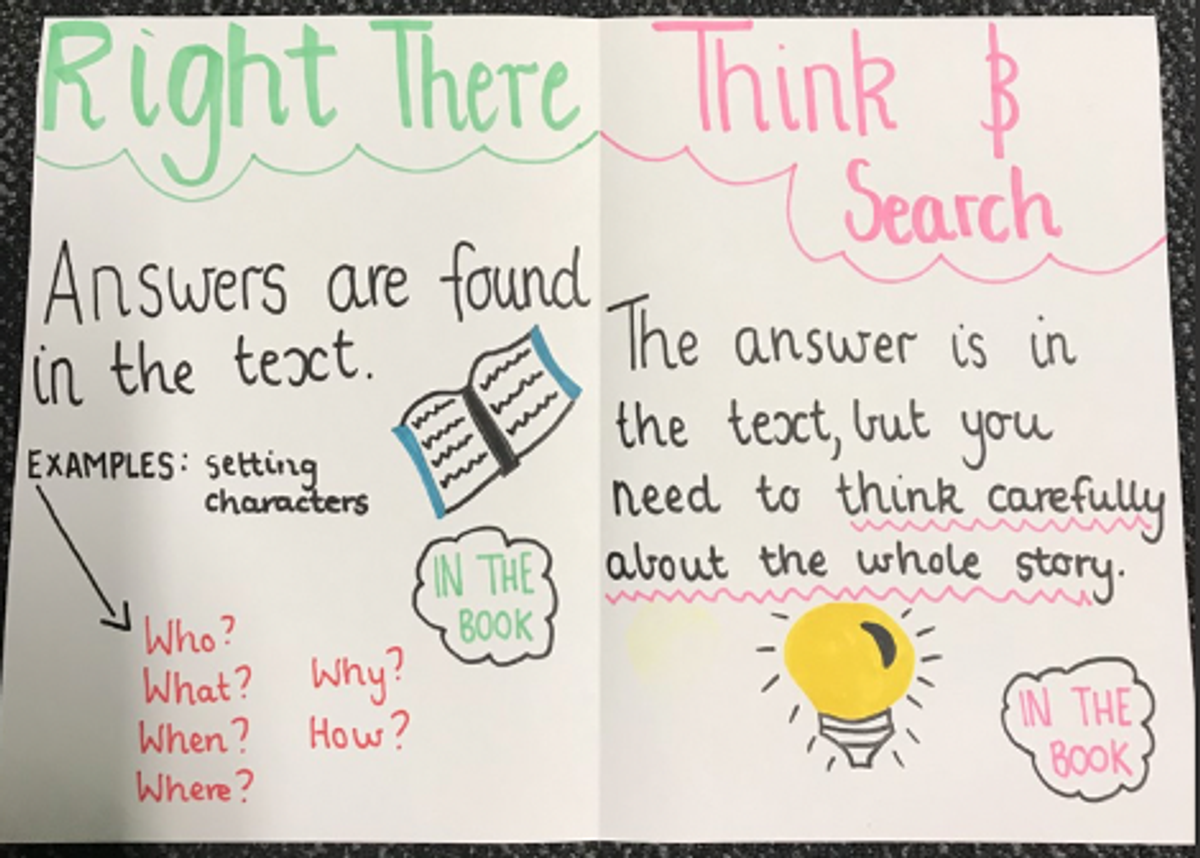 Right There
Answers are found
in the text.
EXAMPLES: setting
characters
IN THE
BOOK
Who?
What?
When?
Where?
Why?
How?
Think &
Search
The answer is in
the text, but you
need to think carefully
about the whole story.
IN THE
BOOK